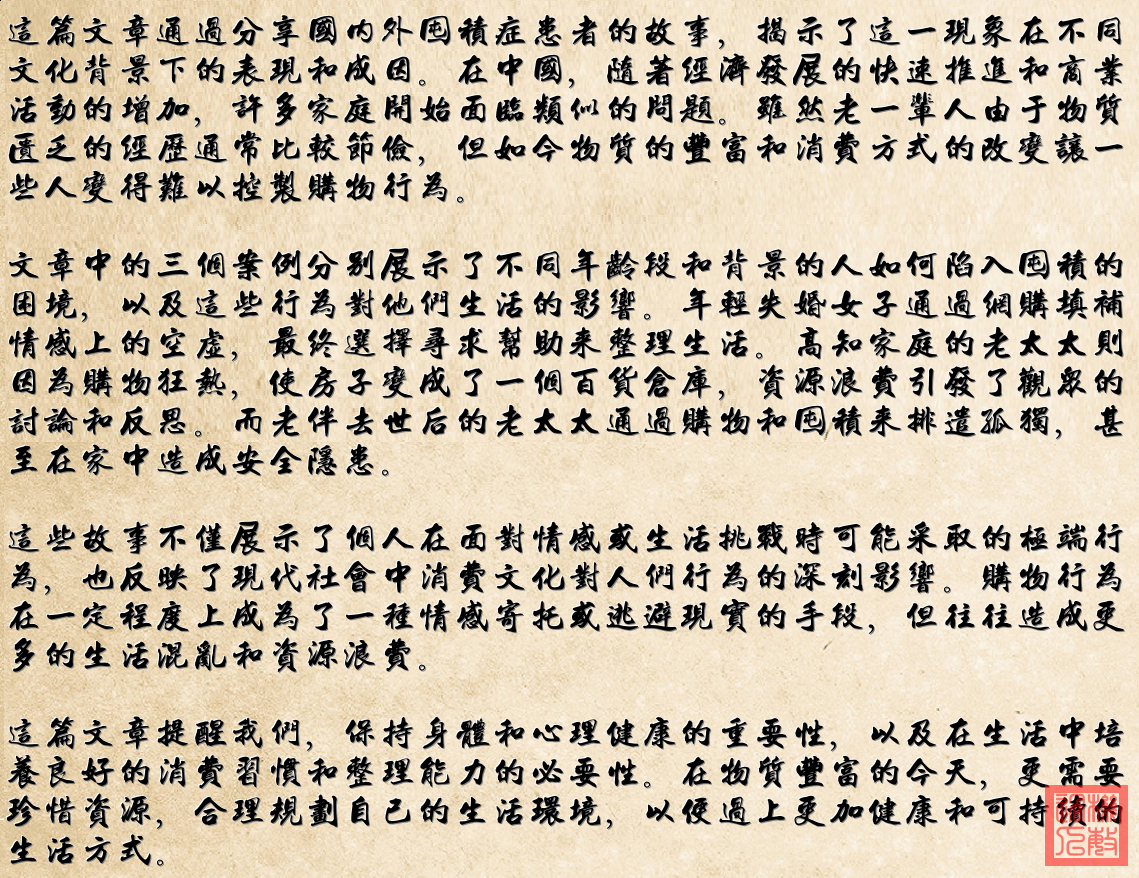 這篇文章通過分享國内外囤積症患者的故事，揭示了這一現象在不同
文化背景下的表現和成因。在中國，隨著經濟發展的快速推進和商業
活動的增加，許多家庭開始面臨類似的問題。雖然老一輩人由于物質
匱乏的經歷通常比較節儉，但如今物質的豐富和消費方式的改變讓一
些人變得難以控製購物行為。
文章中的三個案例分别展示了不同年齡段和背景的人如何陷入囤積的
困境，以及這些行為對他們生活的影響。年輕失婚女子通過網購填補
情感上的空虛，最終選擇尋求幫助来整理生活。高知家庭的老太太則
因為購物狂熱，使房子變成了一個百貨倉庫，資源浪費引發了觀眾的
討論和反思。而老伴去世后的老太太通過購物和囤積来排遣孤獨，甚
至在家中造成安全隱患。
這些故事不僅展示了個人在面對情感或生活挑戰時可能采取的極端行
為，也反映了現代社會中消費文化對人們行為的深刻影響。購物行為
在一定程度上成為了一種情感寄托或逃避現實的手段，但往往造成更
多的生活混亂和資源浪費。
這篇文章提醒我們，保持身體和心理健康的重要性，以及在生活中培
養良好的消費習慣和整理能力的必要性。在物質豐富的今天，更需要
珍惜資源，合理規劃自己的生活環境，以便過上更加健康和可持續的
生活方式。